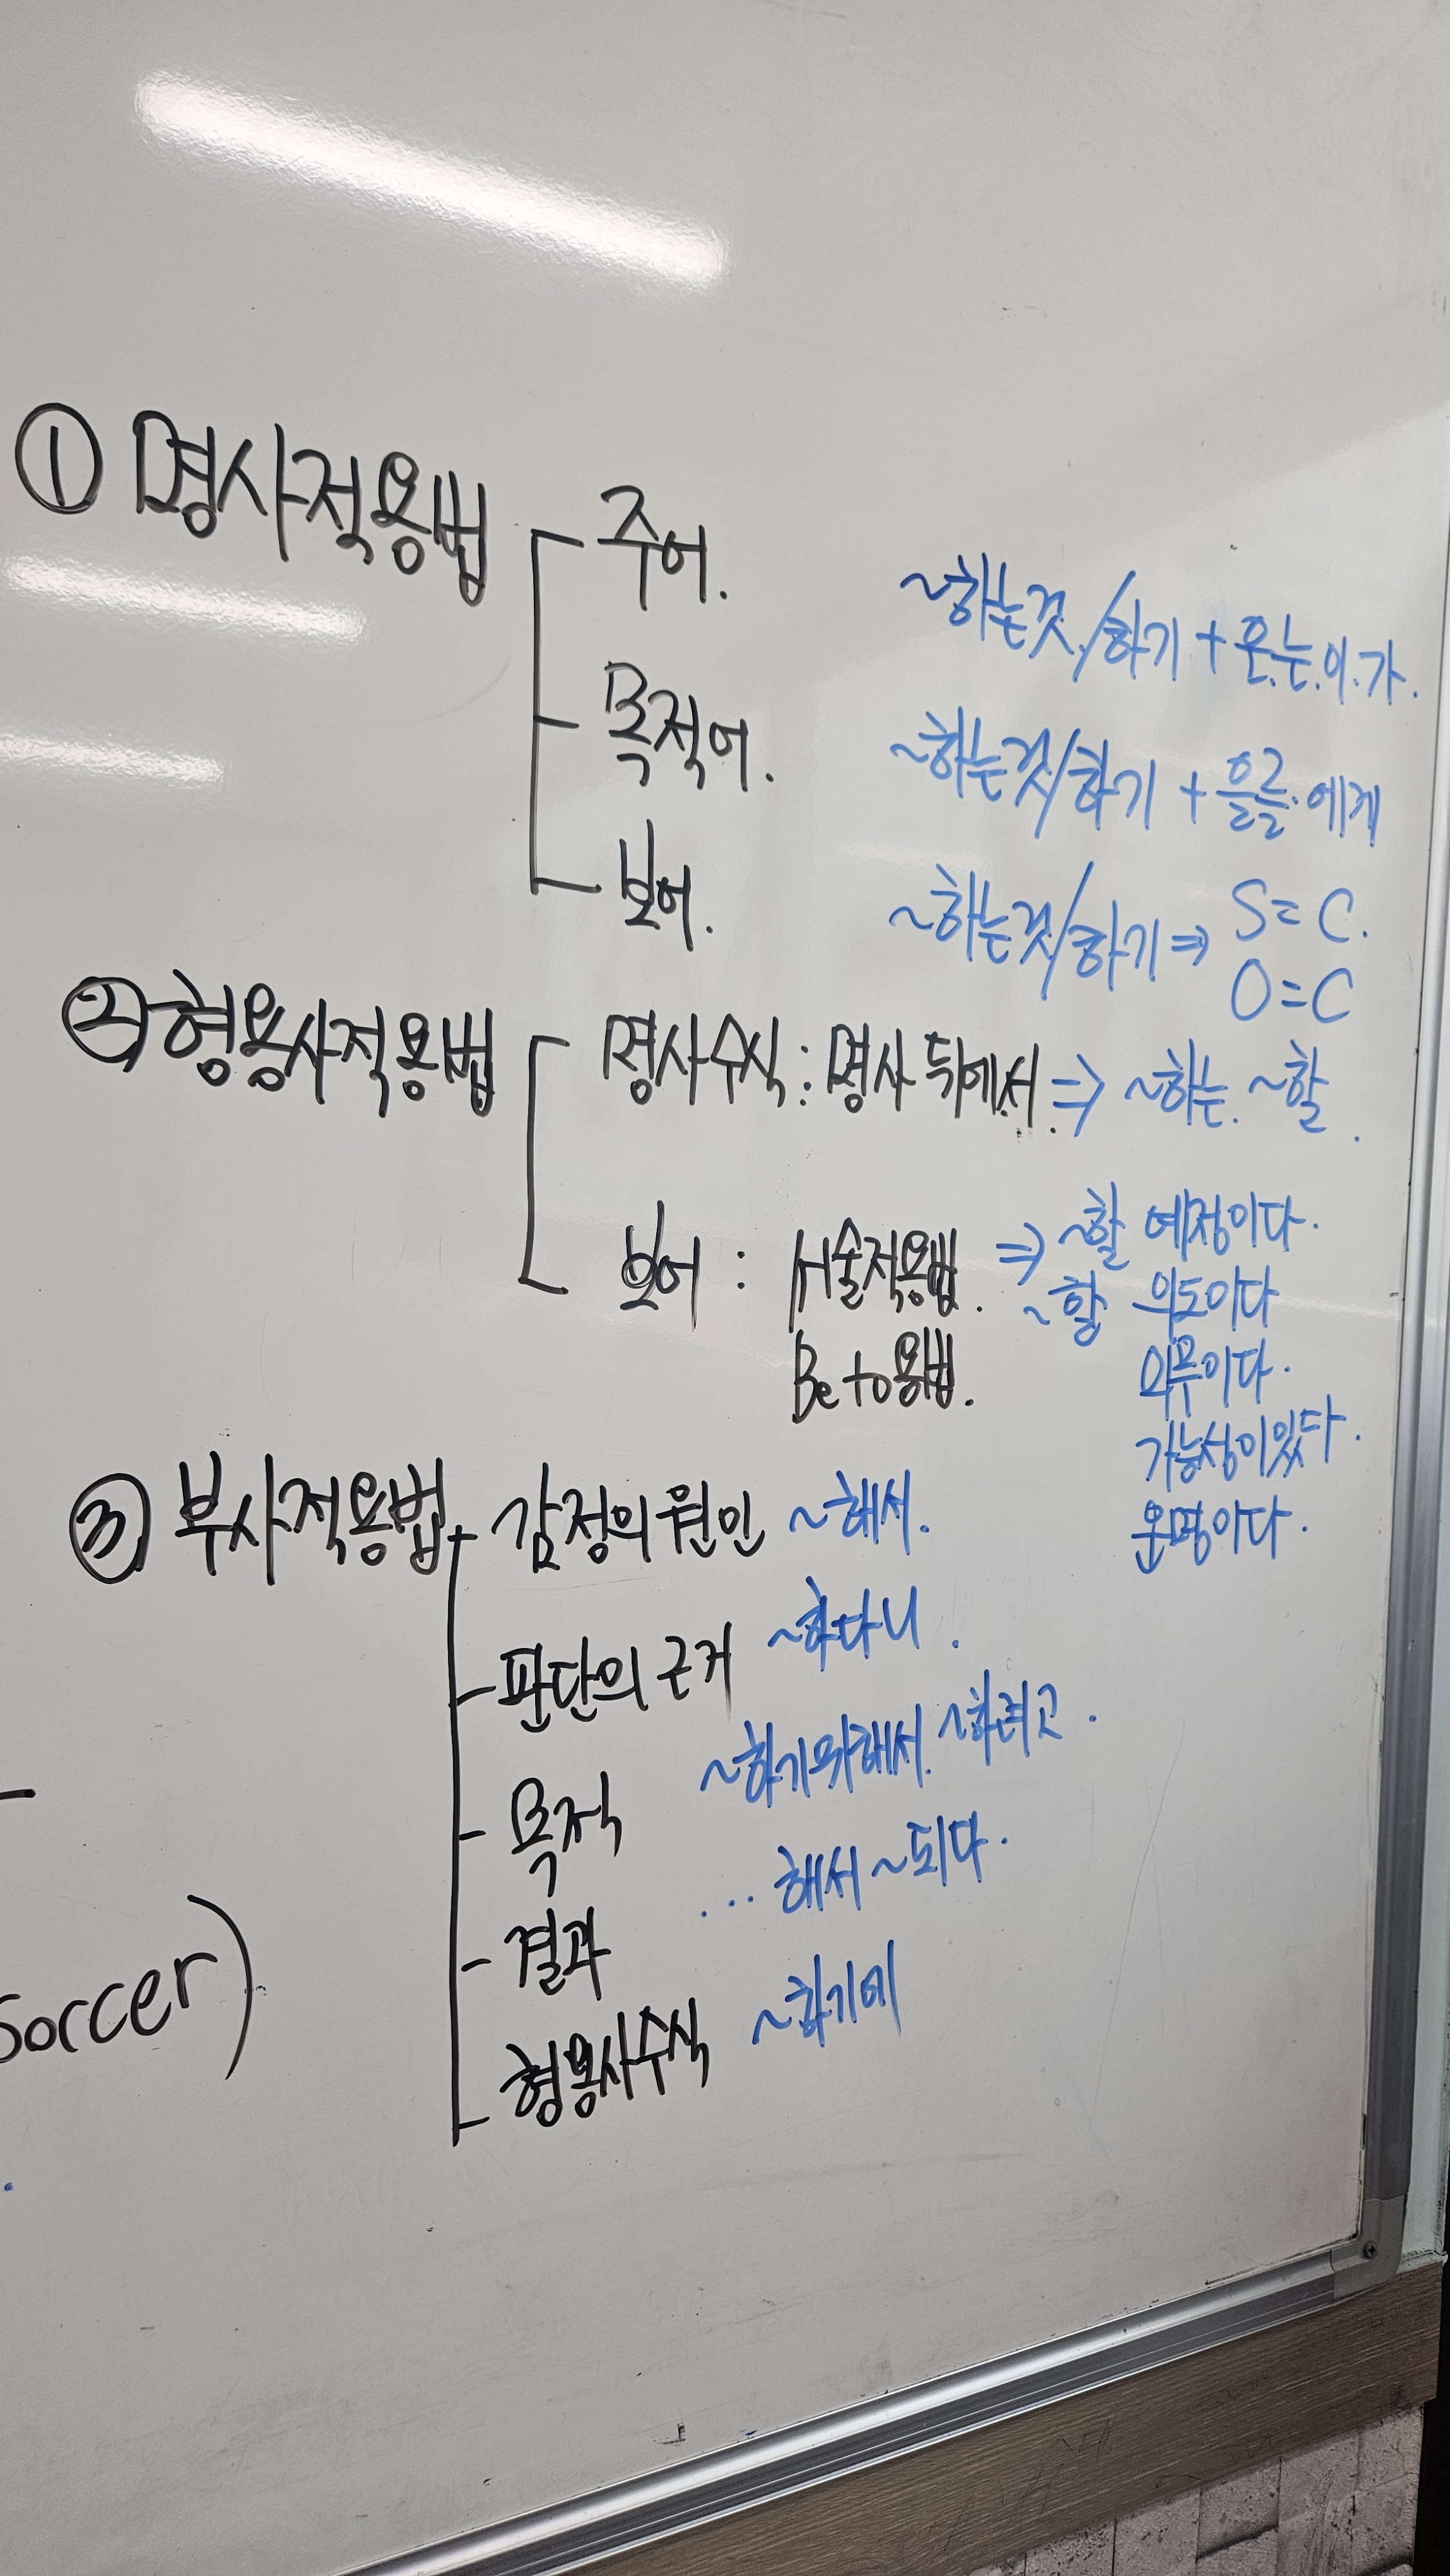 ① 명사적용법
주어. ~하는것/하기 + 은.는.이.가.
목적어. ~하는것/하기 + 을를.에게
보어. ~하는것/하기 ⇒ S = C.
O = C
② 형용사적용법
명사수식 : 명사 뒤에서. ⇒ ~하는. ~할.
보어 : 서술적용법. ⇒ ~할 예정이다.
~할 의도이다
Be to용법. 의무이다.
가능성이있다.
운명이다.
③ 부사적용법
감정의 원인 ~해서.
판단의 근거 ~하다니.
목적 ~하기위해서. ~하려고.
결과 ... 해서 ~되다.
형용사수식 ~하기에
soccer)